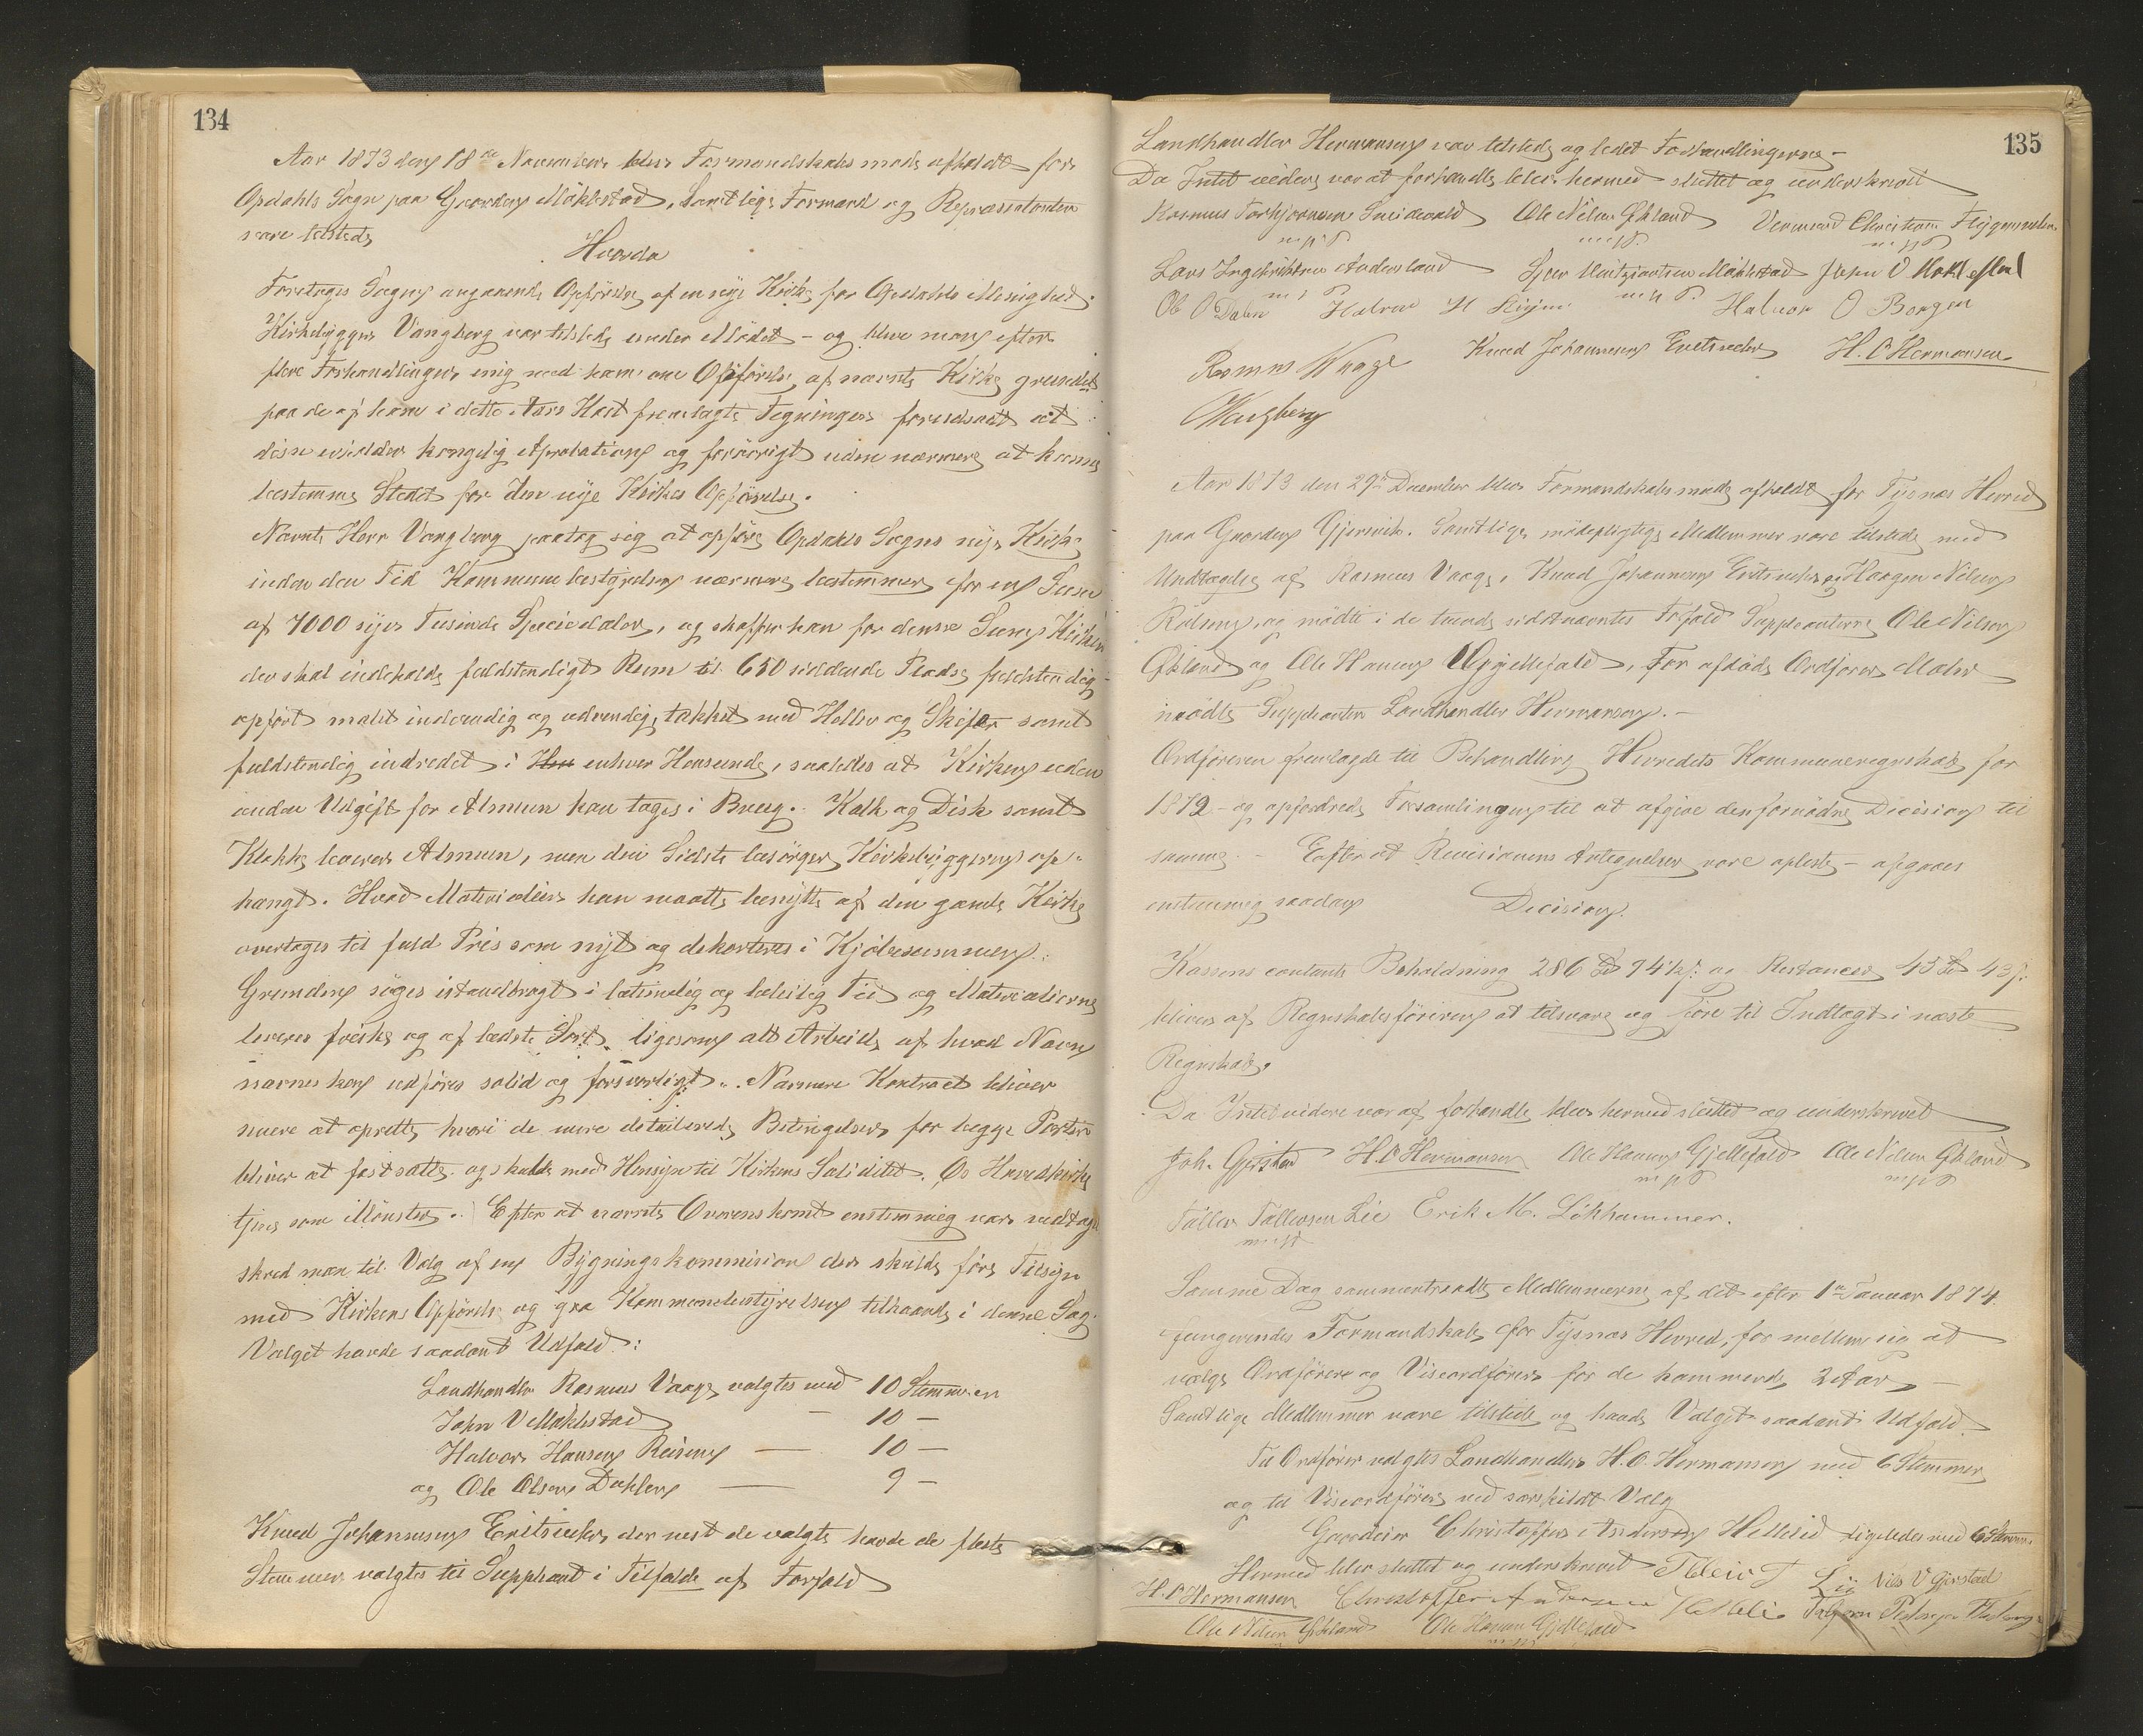 134
Aar 1873 den 18de November blev Formandskabsmøde afholdt for
Opdahls Sogn paa Gaarden Møklestad, Samtlige Formænd og Repræsentanter
vare tilstede
Hvorda
Foretages Sagen angaaende Opførelse af en nye Kirke for Opdahls Menighed.
Kirkebygger Vangberg var tilstede under Mødet – og blev man efter
flere Forhandlinger enig med ham om Opførelse af nævnte Kirke grundet
paa de af ham i dette Aars Høst fremlagte Tegninger forudsadt at
disse erholder kongelig Aprobation og forøvrigt uden nærmere at kunne
bestemme Stedet for den nye Kirkes Opførelse.
Nævnte Herr Vangberg paatog sig at opføre Opdahls Sogns nye Kirke
inden den Tid Kommunebestyrelsen nærmere bestemmer for en Sum
af 7000 syv Tusinde Speciedaler, og skaffer han for denne Sum Kirken
der skal indeholde fuldstendigt Rum til 650 siddende Pladse fuldstendig
opført malet indvendig og udvendig, takket med Heller og Skifer samt
fuldstendig indredet i enhver Henseende, saaledes at Kirken uden
anden Udgift for Almuen kan tages i Brug. Kalk og Disk samt
Klokke leverer Almuen, men den Sidste besørger Kirkebyggeren op-
hængt. Hvad Materialier han maatte benytte af den gamle Kirke
overtages til fuld Pris som nyt og dekorteres i Kjøbesummen.
Grunden søges istandbragt i betimelig og beleilig Tid og Materialierne
leveres friske og af bedste Sort, ligesom alt Arbeide af hvad Navn
nævnes kan udføres solid og forsvarligt. Nærmere Kontract bliver
mere at oprette, hvori de mere detailerede Betingelser for begge Parter
bliver at fastsætte og skulde med Hensyn til Kirkens Soliditet. Os Hovedkirke
tjene som Mønster. Efter at nævnte Overenskomst enstemmig var vedtagen
skred man til Valg af en Bygningskommision der skulde føre Tilsyn
med Kirkens Opførelse og gaa Kommunebestyrelsen tilhaande i denne Sag.
Valget havde saadant Udfald:
Landhandler Rasmus Vaage valgtes med 10 Stemmer
John V Møklestad – 10 –
Halvor Hansen Reisen — 10 –
og Ole Olsen Dahlen — 9 –
Knud Johannesen Eritsvek, der nest de valgte havde de fleste
Stemmer valgtes til Suppleant i Tilfælde af Forfald
135
Landhandler Hermansen var tilstede og ledet Forhandlingerne –
Da Intet videre var at forhandle blev hermed sluttet og underskrevet
Rasmus Torbjørnsen Ole Nilsen Økland
Lars Ingebrigtsen
Ole O Dalen Halvor H Halvor O Borgen
Rasmus Waage Knud Johannesen H. O Hermansen
Wangberg
Aar 1873 den 29de December blev Formandskabsmøde afholdt for Tysnæs Herred
paa Gaarden Gjerevik. Samtlige mødepligtige Medlemmer vare tilstede med
Undtagelse af Rasmus Vaage, Knud Johannesen og Haagen Nilsen
og mødte i de tvende sidstnævntes Forfald Suppleanterne Ole Nilsen
Økland og Ole Hansen Gjellefald, For afdøde Ordfører
mødte Suppleanten Landhandler Hermansen. –
Ordføreren fremlagde til Behandling Herredets Kommuneregnskab for
1872 – og opfordrede Forsamlingen til at afgive den fornødne Decision til
samme. – Efter at Revisionens Antegnelser vare opleste – afgaves
enstemmig saadan Decision.
Kassens contante Beholdning 286 Sp 74 og Restancer 43 Sp 43
bliver af Regnskabsføreren at tilsvare og føre til Indtægt i næste
Regnskab.
Da Intet videre var at forhandle blev hermed sluttet og underskrevet
Joh. Gjerstad H. O Hermansen Ole Hansen Gjellefald Ole Nilsen Økland
Tollev Tollevsen Lie Erik M. Løkhammer.
Samme Dag sammentraadte Medlemmerne af det efter 1ste Januar 1874
fungerende Formandskab for Tysnæs Herred, for mellem sig at
vælge Ordfører og Viceordfører for de kommende 2 Aar –
Samtlige Medlemmer vare tilstede og havde Valget saadant Udfald.
Til Ordfører valgtes Landhandler H. O. Hermansen med 6 Stemmer
og til Viceordfører ved særskildt Valg
Gaardeier Christoffer Andersen ligeledes med 6 Stemmer
Hermed blev sluttet og underskrevet T Lie Nils V Gjerstad
H. O Hermansen Christoffer Andersen
Ole Nilsen Økland Ole Hansen Gjellefald